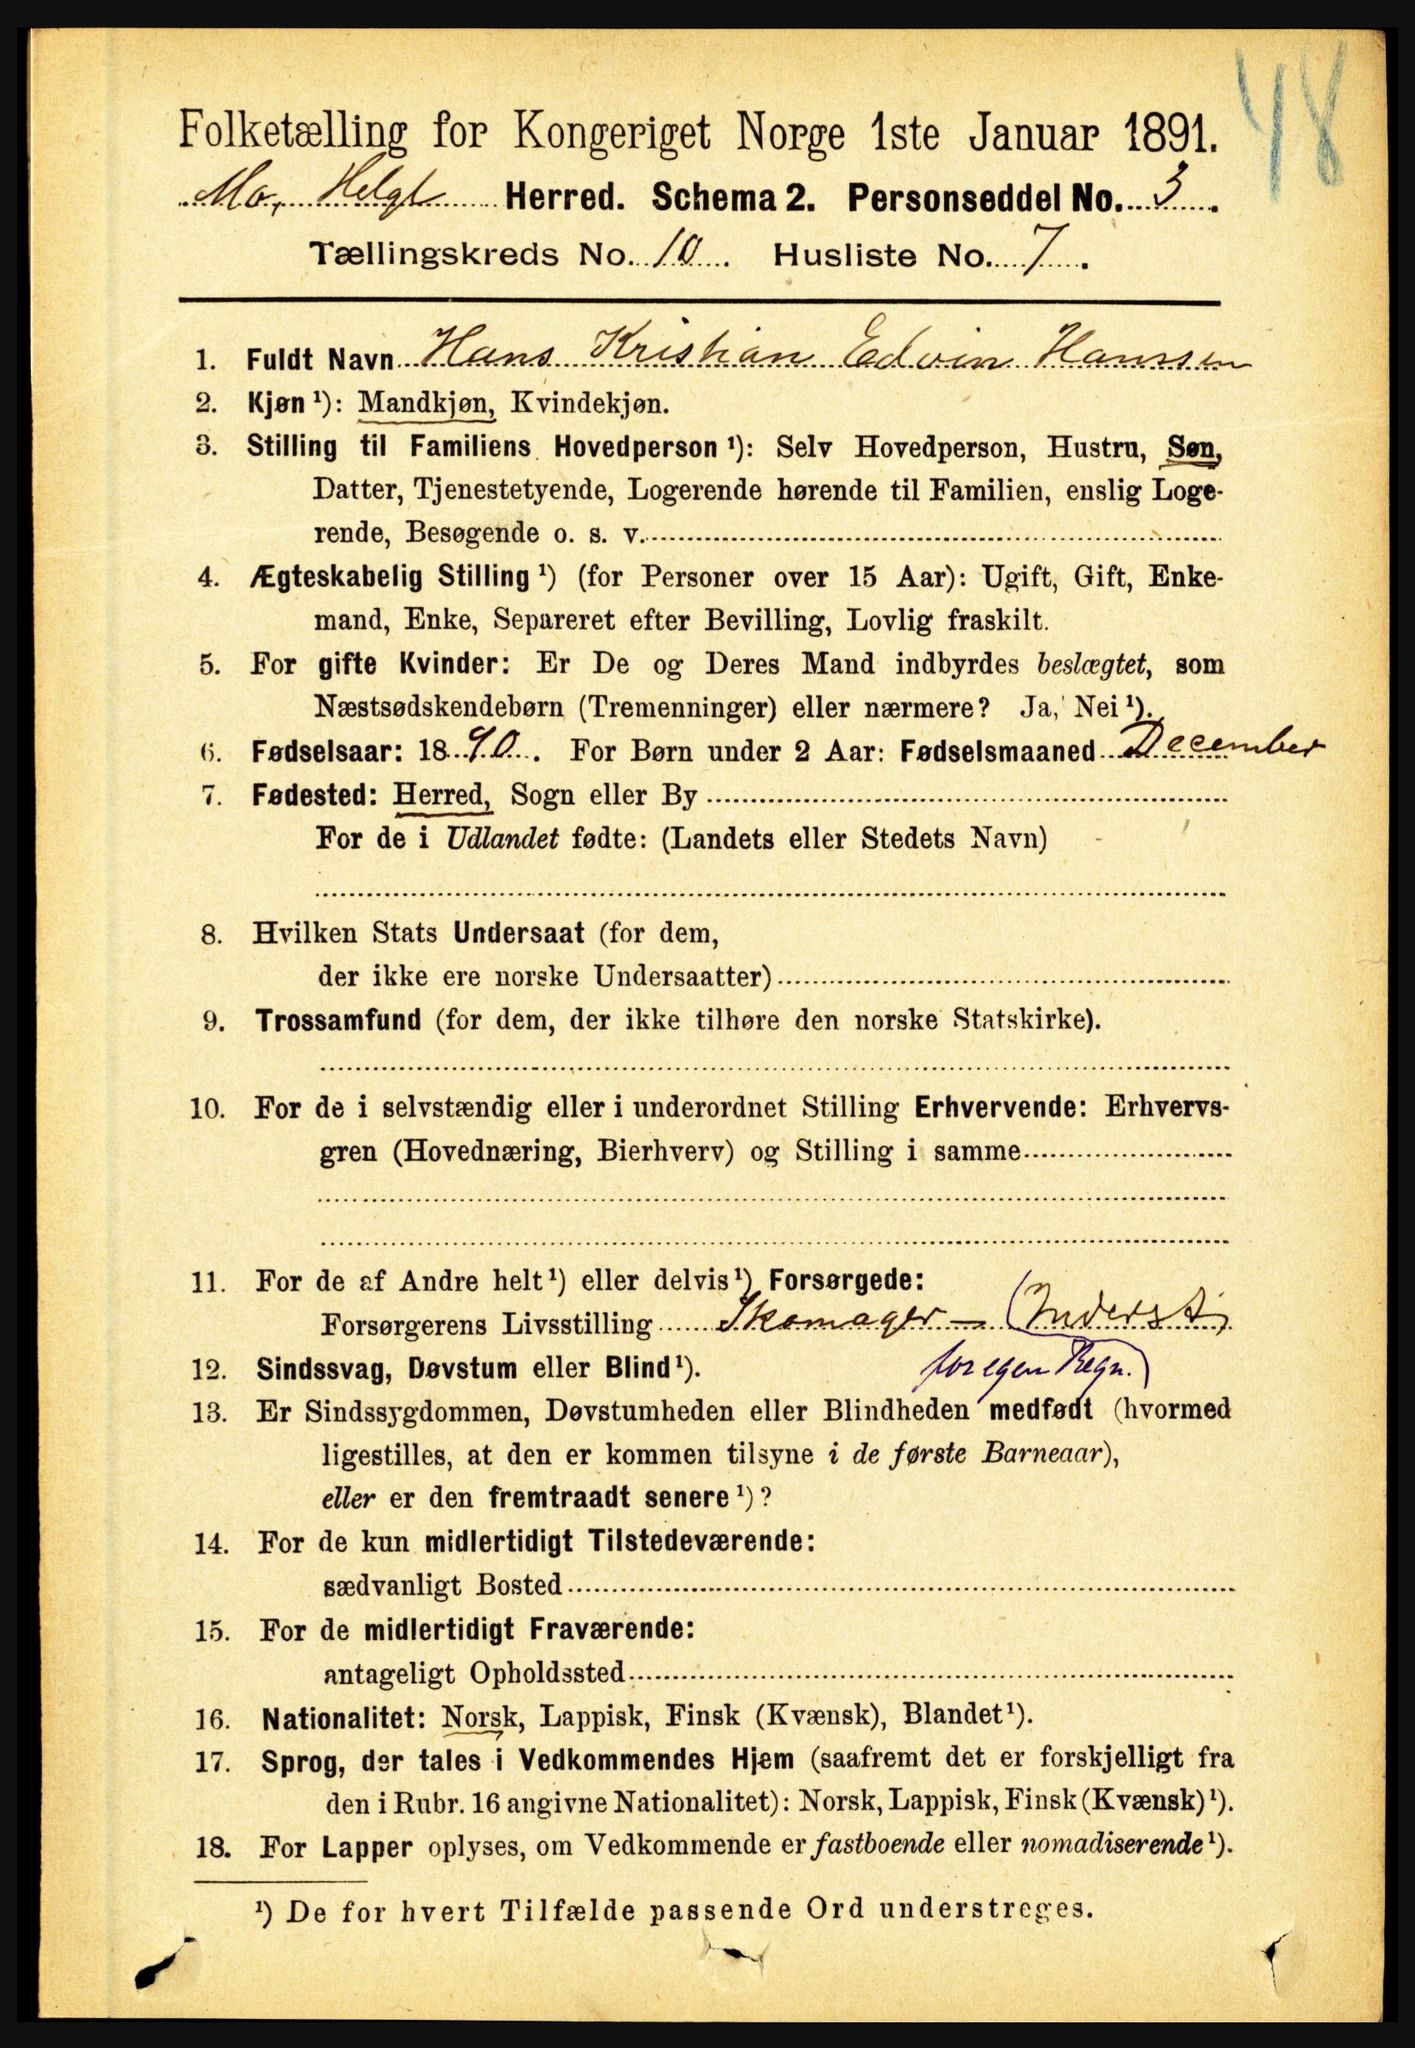 48
Folketælling for Kongeriget Norge 1ste Januar 1891.
Mo, Helgl Herred. Schema 2. Personseddel No. 3.
Tællingskreds No. 10. Husliste No. 7.
1. Fuldt Navn Hans Kristian Edvin Hanssen
2. Kjøn ¹): Mandkjøn, Kvindekjøn.
3. Stilling til Familiens Hovedperson ¹): Selv Hovedperson, Hustru, Søn,
Datter, Tjenestetyende, Logerende hørende til Familien, enslig Loge-
rende, Besøgende o. s. v.
4. Ægteskabelig Stilling ¹) (for Personer over 15 Aar): Ugift, Gift, Enke-
mand, Enke, Separeret efter Bevilling, Lovlig fraskilt.
5. For gifte Kvinder: Er De og Deres Mand indbyrdes beslægtet, som
Næstsødskendebørn (Tremenninger) eller nærmere? Ja, Nei ¹).
6. Fødselsaar: 1890. For Børn under 2 Aar: Fødselsmaaned December
7. Fødested: Herred, Sogn eller By
For de i Udlandet fødte: (Landets eller Stedets Navn)
8. Hvilken Stats Undersaat (for dem,
der ikke ere norske Undersaatter)
9. Trossamfund (for dem, der ikke tilhøre den norske Statskirke).
10. For de i selvstændig eller i underordnet Stilling Erhvervende: Erhvervs-
gren (Hovednæring, Bierhverv) og Stilling i samme
11. For de af Andre helt ¹) eller delvis ¹) Forsørgede:
Forsørgerens Livsstilling Skomager – (Inderst,
for egen Regn.)
12. Sindssvag, Døvstum eller Blind ¹).
13. Er Sindssygdommen, Døvstumheden eller Blindheden medfødt (hvormed
ligestilles, at den er kommen tilsyne i de første Barneaar),
eller er den fremtraadt senere ¹)?
14. For de kun midlertidigt Tilstedeværende:
sædvanligt Bosted
15. For de midlertidigt Fraværende:
antageligt Opholdssted
16. Nationalitet: Norsk, Lappisk, Finsk (Kvænsk), Blandet ¹).
17. Sprog, der tales i Vedkommendes Hjem (saafremt det er forskjelligt fra
den i Rubr. 16 angivne Nationalitet): Norsk, Lappisk, Finsk (Kvænsk) ¹).
18. For Lapper oplyses, om Vedkommende er fastboende eller nomadiserende ¹).
¹) De for hvert Tilfælde passende Ord understreges.